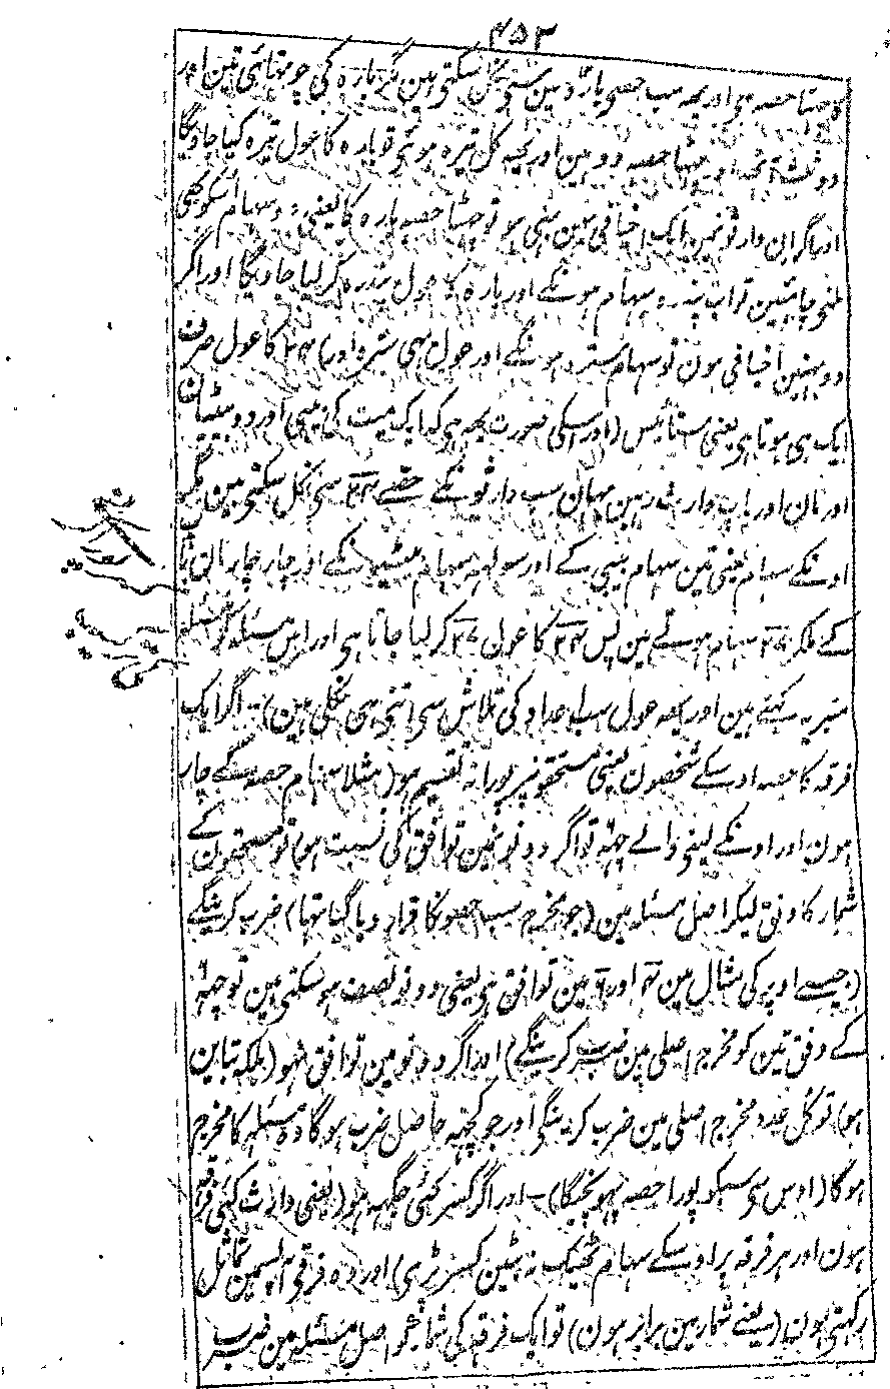 ۴۵۳
چھٹا حصہ ہی اور یہ سب حصے بارہ مین سی نکل سکتی ہین گے بارہ کی چوتھائی تین اور
دو ثلث آٹھ اور چھٹا حصہ دو ہین اور یہ کل تیرہ ہوئے تو بارہ کا عول تیرہ کیا جاویگا
اور اگر ان وارثونمین ایک اخیافی بہن بہی ہو تو چھٹا حصہ بارہ کا یعنی دو سہام اسکو بہی
ملنی چاہئین تو اب پندرہ سہام ہونگے اور بارہ کا عول پندرہ کر لیا جاویگا اور اگر
دو بہنین اخیافی ہون تو سہام سترہ ہونگے اور عول بہی سترہ اور) ۲۴ کا عول صرف
ایک ہی ہوتا ہی یعنی ستائیس (اور اسکی صورت یہ ہی کہ ایک میت کی بیبی اور دو بیٹیان
اور مان اور باپ وارث رہین یہان سب وارثونکے حصے ۲۴ سی نکل سکتی ہین مگر
اونکے سہام یعنی تین سہام بیبی کے اور سولہ سہام بیٹیونکے اور چار چار مان باپ
کے ملکر ۲۷ سہام ہوتے ہین پس ۲۴ کا عول ۲۷ کر لیا جاتا ہی اور اس مسئلہ کو مسئلہ
منبریہ کہتے ہین اور یہ عول سب اعداد کی تلاش سی اتنی ہی نکلی ہین)۔ اگر ایک
فرقہ کا حصہ اوسکے شخصون یعنی مستحقونپر پورا نہ تقسیم ہو (مثلا سہام حصہ کے چار
ہون اور اونکے لینی والے چھ تو اگر دونونمین توافق کی نسبت ہو) تو مستحقون کے
شمار کا وفق لیکر اصل مسئلہ مین (جو مخرج سب حصونکا قرار دیا گیا تہا) ضرب کرینگے
(جیسے اوپر کی مثال مین ۴ اور ۶ مین توافق ہی یعنی دونو نصف ہو سکتی ہین تو چھ
کے وفق تین کو مخرج اصلی مین ضرب کرینگے) اور اگر دونو مین توافق نہو (بلکہ تباین
ہو) تو کل عدد مخرج اصلی مین ضرب کرینگی اور جو کچھ حاصل ضرب ہوگا وہ مسئلہ کا مخرج
ہوگا (اوس سی سبکو پورا حصہ پہونچیگا)۔ اور اگر کسر کئی جگہہ ہو (یعنی وارث کئی فرقہ
ہون اور ہر فرقہ پر اوسکے سہام ٹھیک نہ بٹین کسر پڑی) اور وہ فرقی آپسمین تماثل
رکہتی ہون (یعنے شمار مین برابر ہون) تو ایک فرقہ کی شمار کو اصل مسئلہ مین ضرب